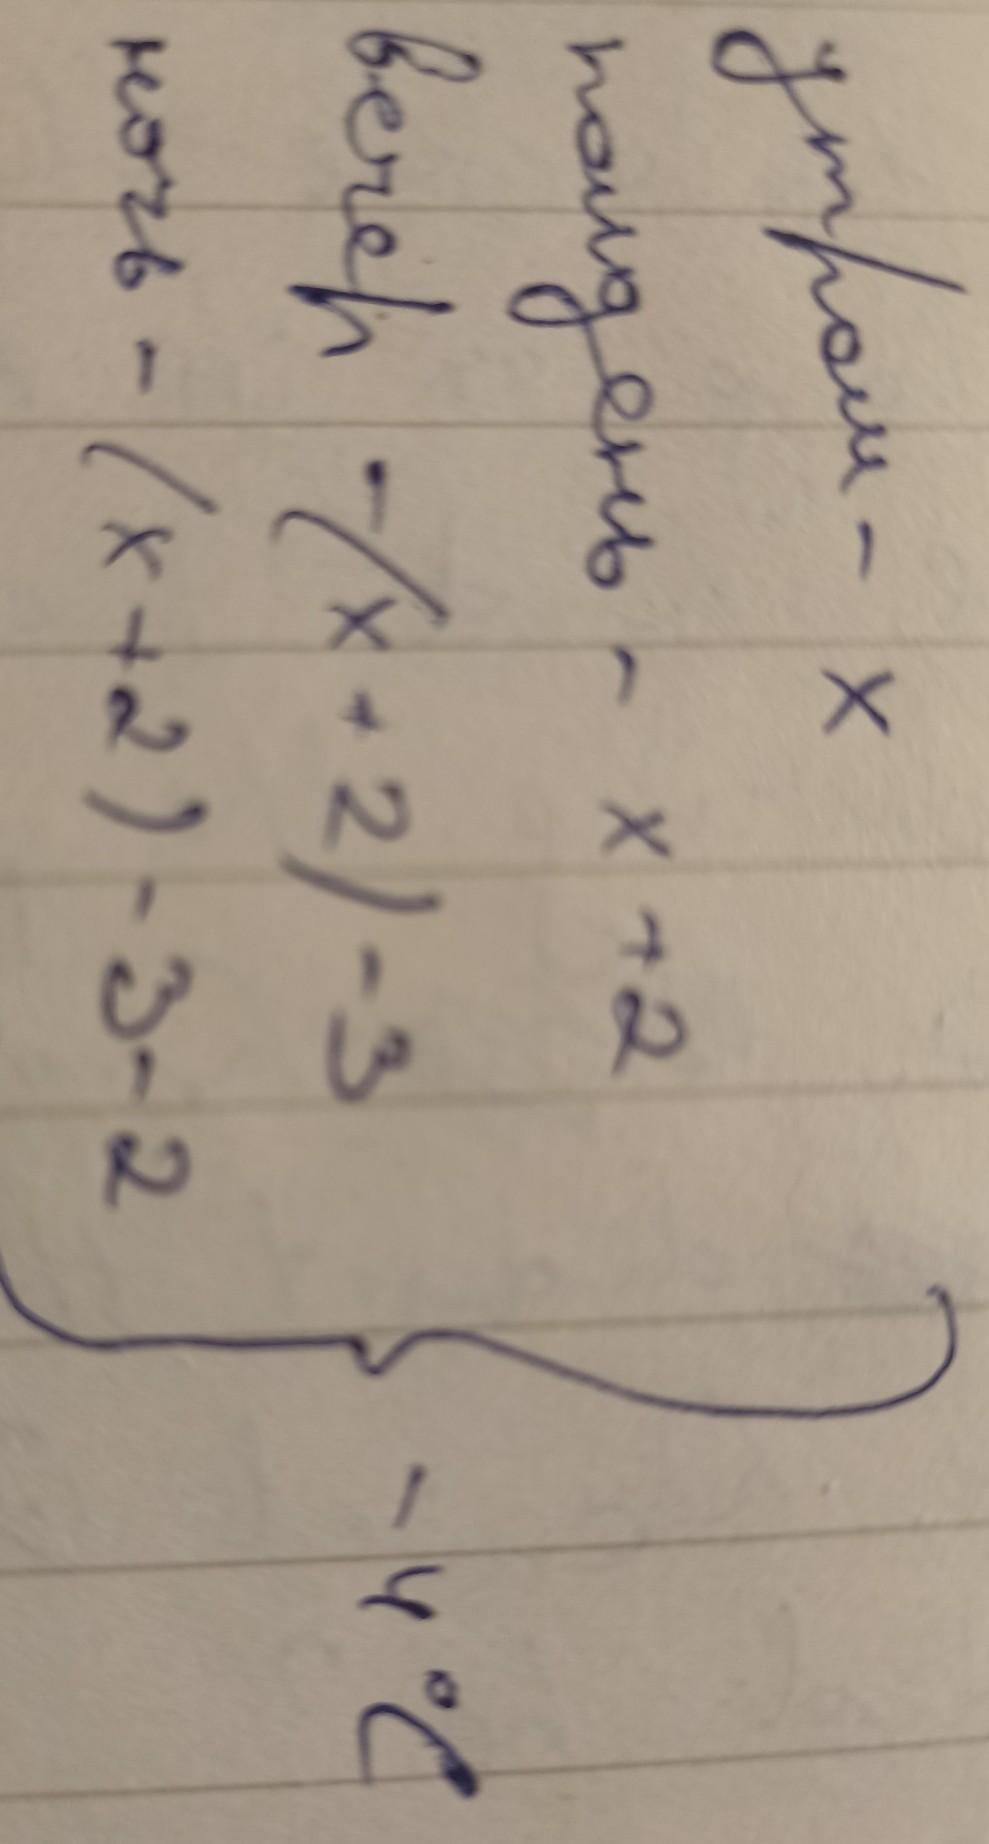 утром - x
полдень - x +2
вечер - (x + 2) - 3
ночь - (x + 2) - 3 - 2
- 4 °C